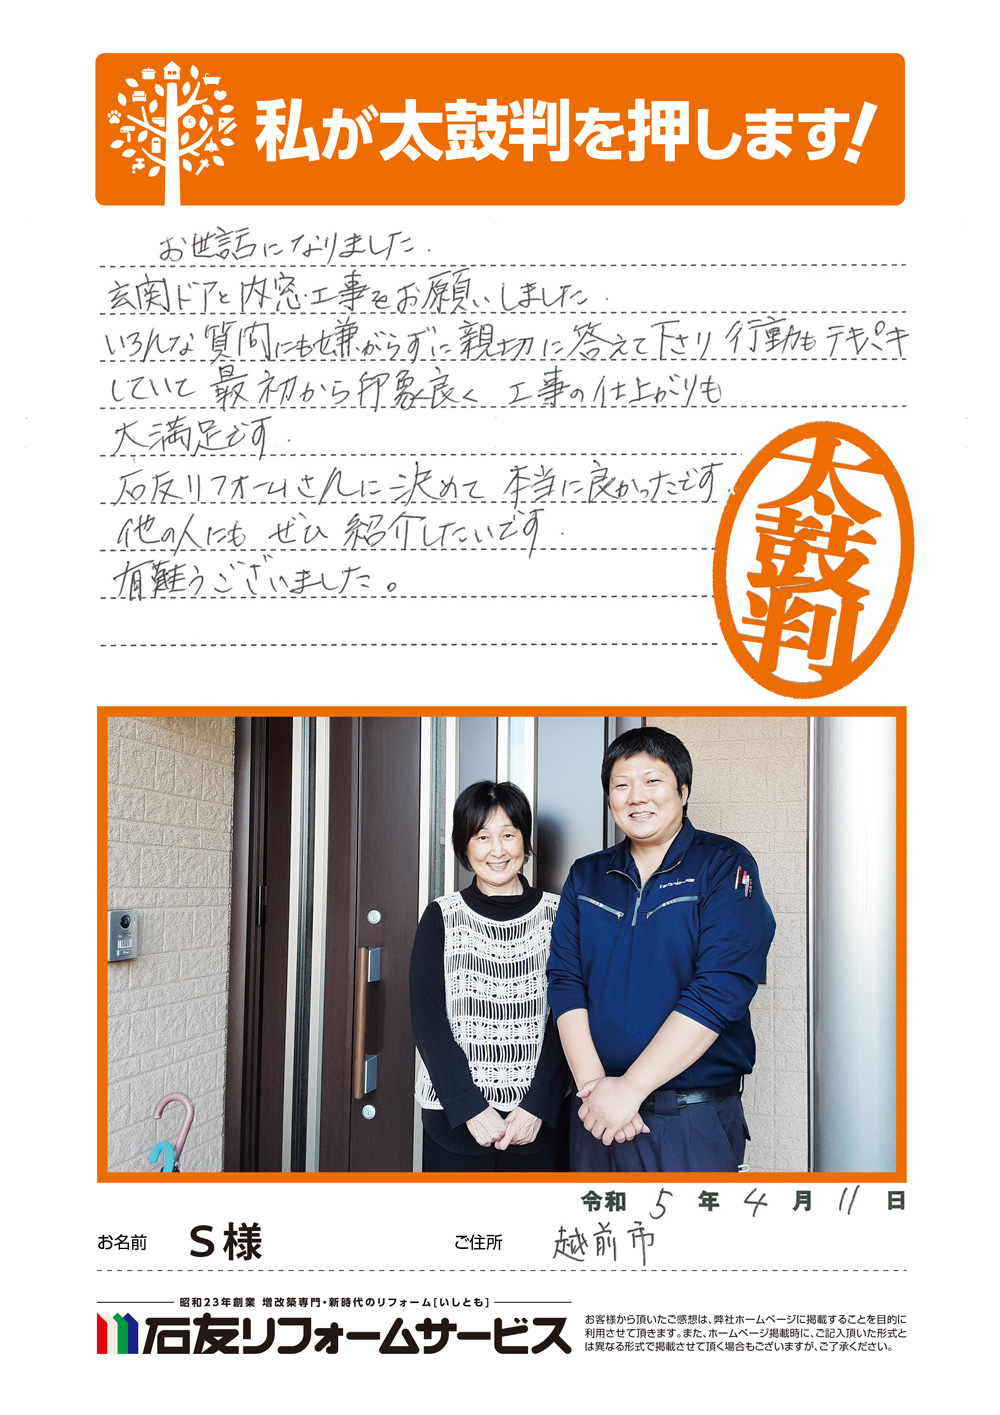 私が太鼓判を押します!
お世話になりました.
玄関ドアと内窓.工事をお願いしました.
いろんな質問にも嫌がらずに親切に答えて下さり 行動もテキパキ
していて 最初から印象良く 工事の仕上がりも
大満足です.
石友リフォームさんに決めて 本当に良かったです.
他の人にも ぜひ 紹介したいです.
有難うございました。
太鼓判
令和 5 年 4 月 11 日
お名前 S様 ご住所 越前市
昭和23年創業 増改築専門・新時代のリフォーム[いしとも]
石友リフォームサービス
お客様から頂いたご感想は、弊社ホームページに掲載することを目的に
利用させて頂きます。また、ホームページ掲載時に、ご記入頂いた形式と
は異なる形式で掲載させて頂く場合もございますが、ご了承ください。